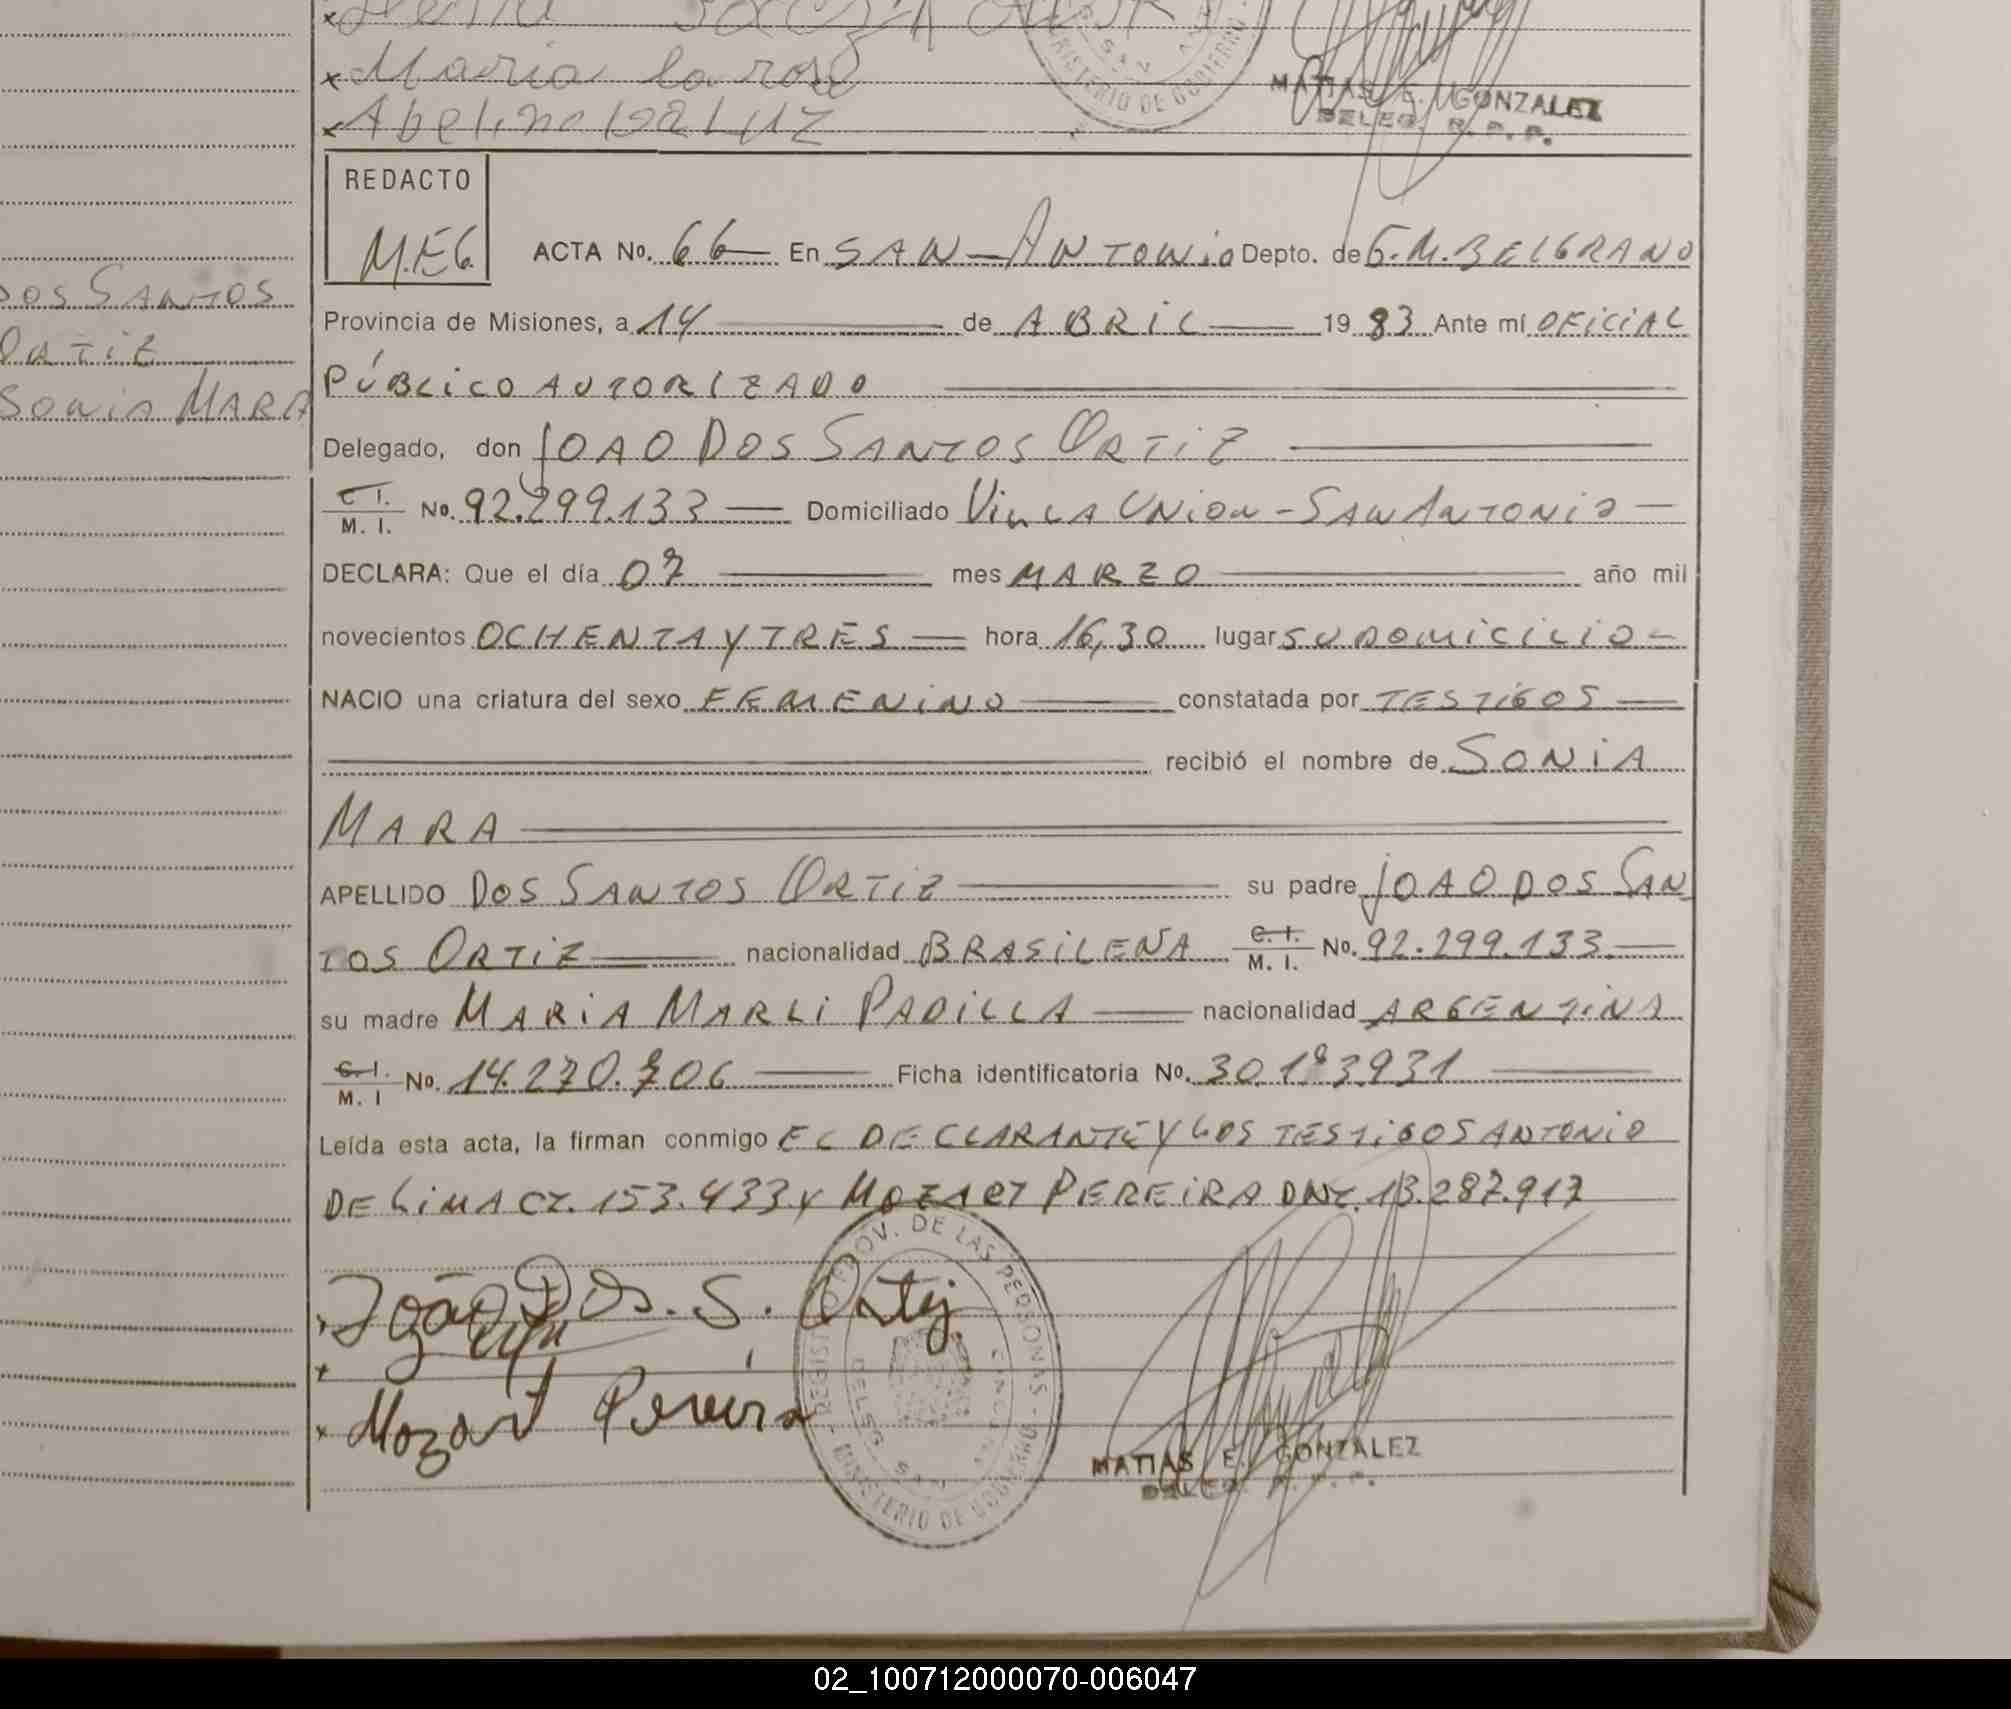 Maria la rosa
Abelino da Luz
MATIAS E. GONZALEZ
DELEG. R. P. P.
MINISTERIO DE GOBIERNO
REDACTO
M.E.G.
ACTA No. 66 En SAN-ANTONIO Depto. de G.M.BELGRANO
Provincia de Misiones, a 14 de ABRIL 1983 Ante mí OFICIAL
PÚBLICO AUTORIZADO
Delegado, don JOAO DOS SANTOS ORTIZ
C. I. M. I. No. 92.299.133 Domiciliado VILLA UNION - SAN ANTONIO
DECLARA: Que el día 07 mes MARZO año mil
novecientos OCHENTA Y TRES hora 16,30 lugar SU DOMICILIO
NACIO una criatura del sexo FEMENINO constatada por TESTIGOS
recibió el nombre de SONIA
MARA
APELLIDO DOS SANTOS ORTIZ su padre JOAO DOS SAN
TOS ORTIZ nacionalidad BRASILEÑA C. I. M. I. No. 92.299.133.
su madre MARIA MARLI PADILLA nacionalidad ARGENTINA
C. I. M. I No. 14.270.706 Ficha identificatoria No. 30.183931
Leída esta acta, la firman conmigo EL DECLARANTE Y LOS TESTIGOS ANTONIO
DE LIMA CI. 153.433 Y MOZART PEREIRA DNI. 13.287.917
João Dos. S. Ortiz
Mozart Pereira
REGISTRO PROV. DE LAS PERSONAS - MINISTERIO DE GOBIERNO
MATIAS E. GONZALEZ
DELEG. R. P. P.
DOS SANTOS
ORTIZ
SONIA MARA
02_100712000070-006047